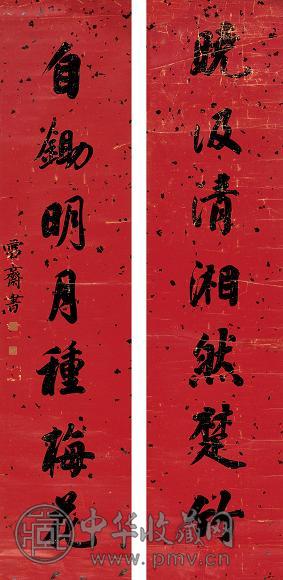 晓汲清湘然楚竹
自鋤明月種梅花
雪齋書
中华收藏网
www.pmv.cn